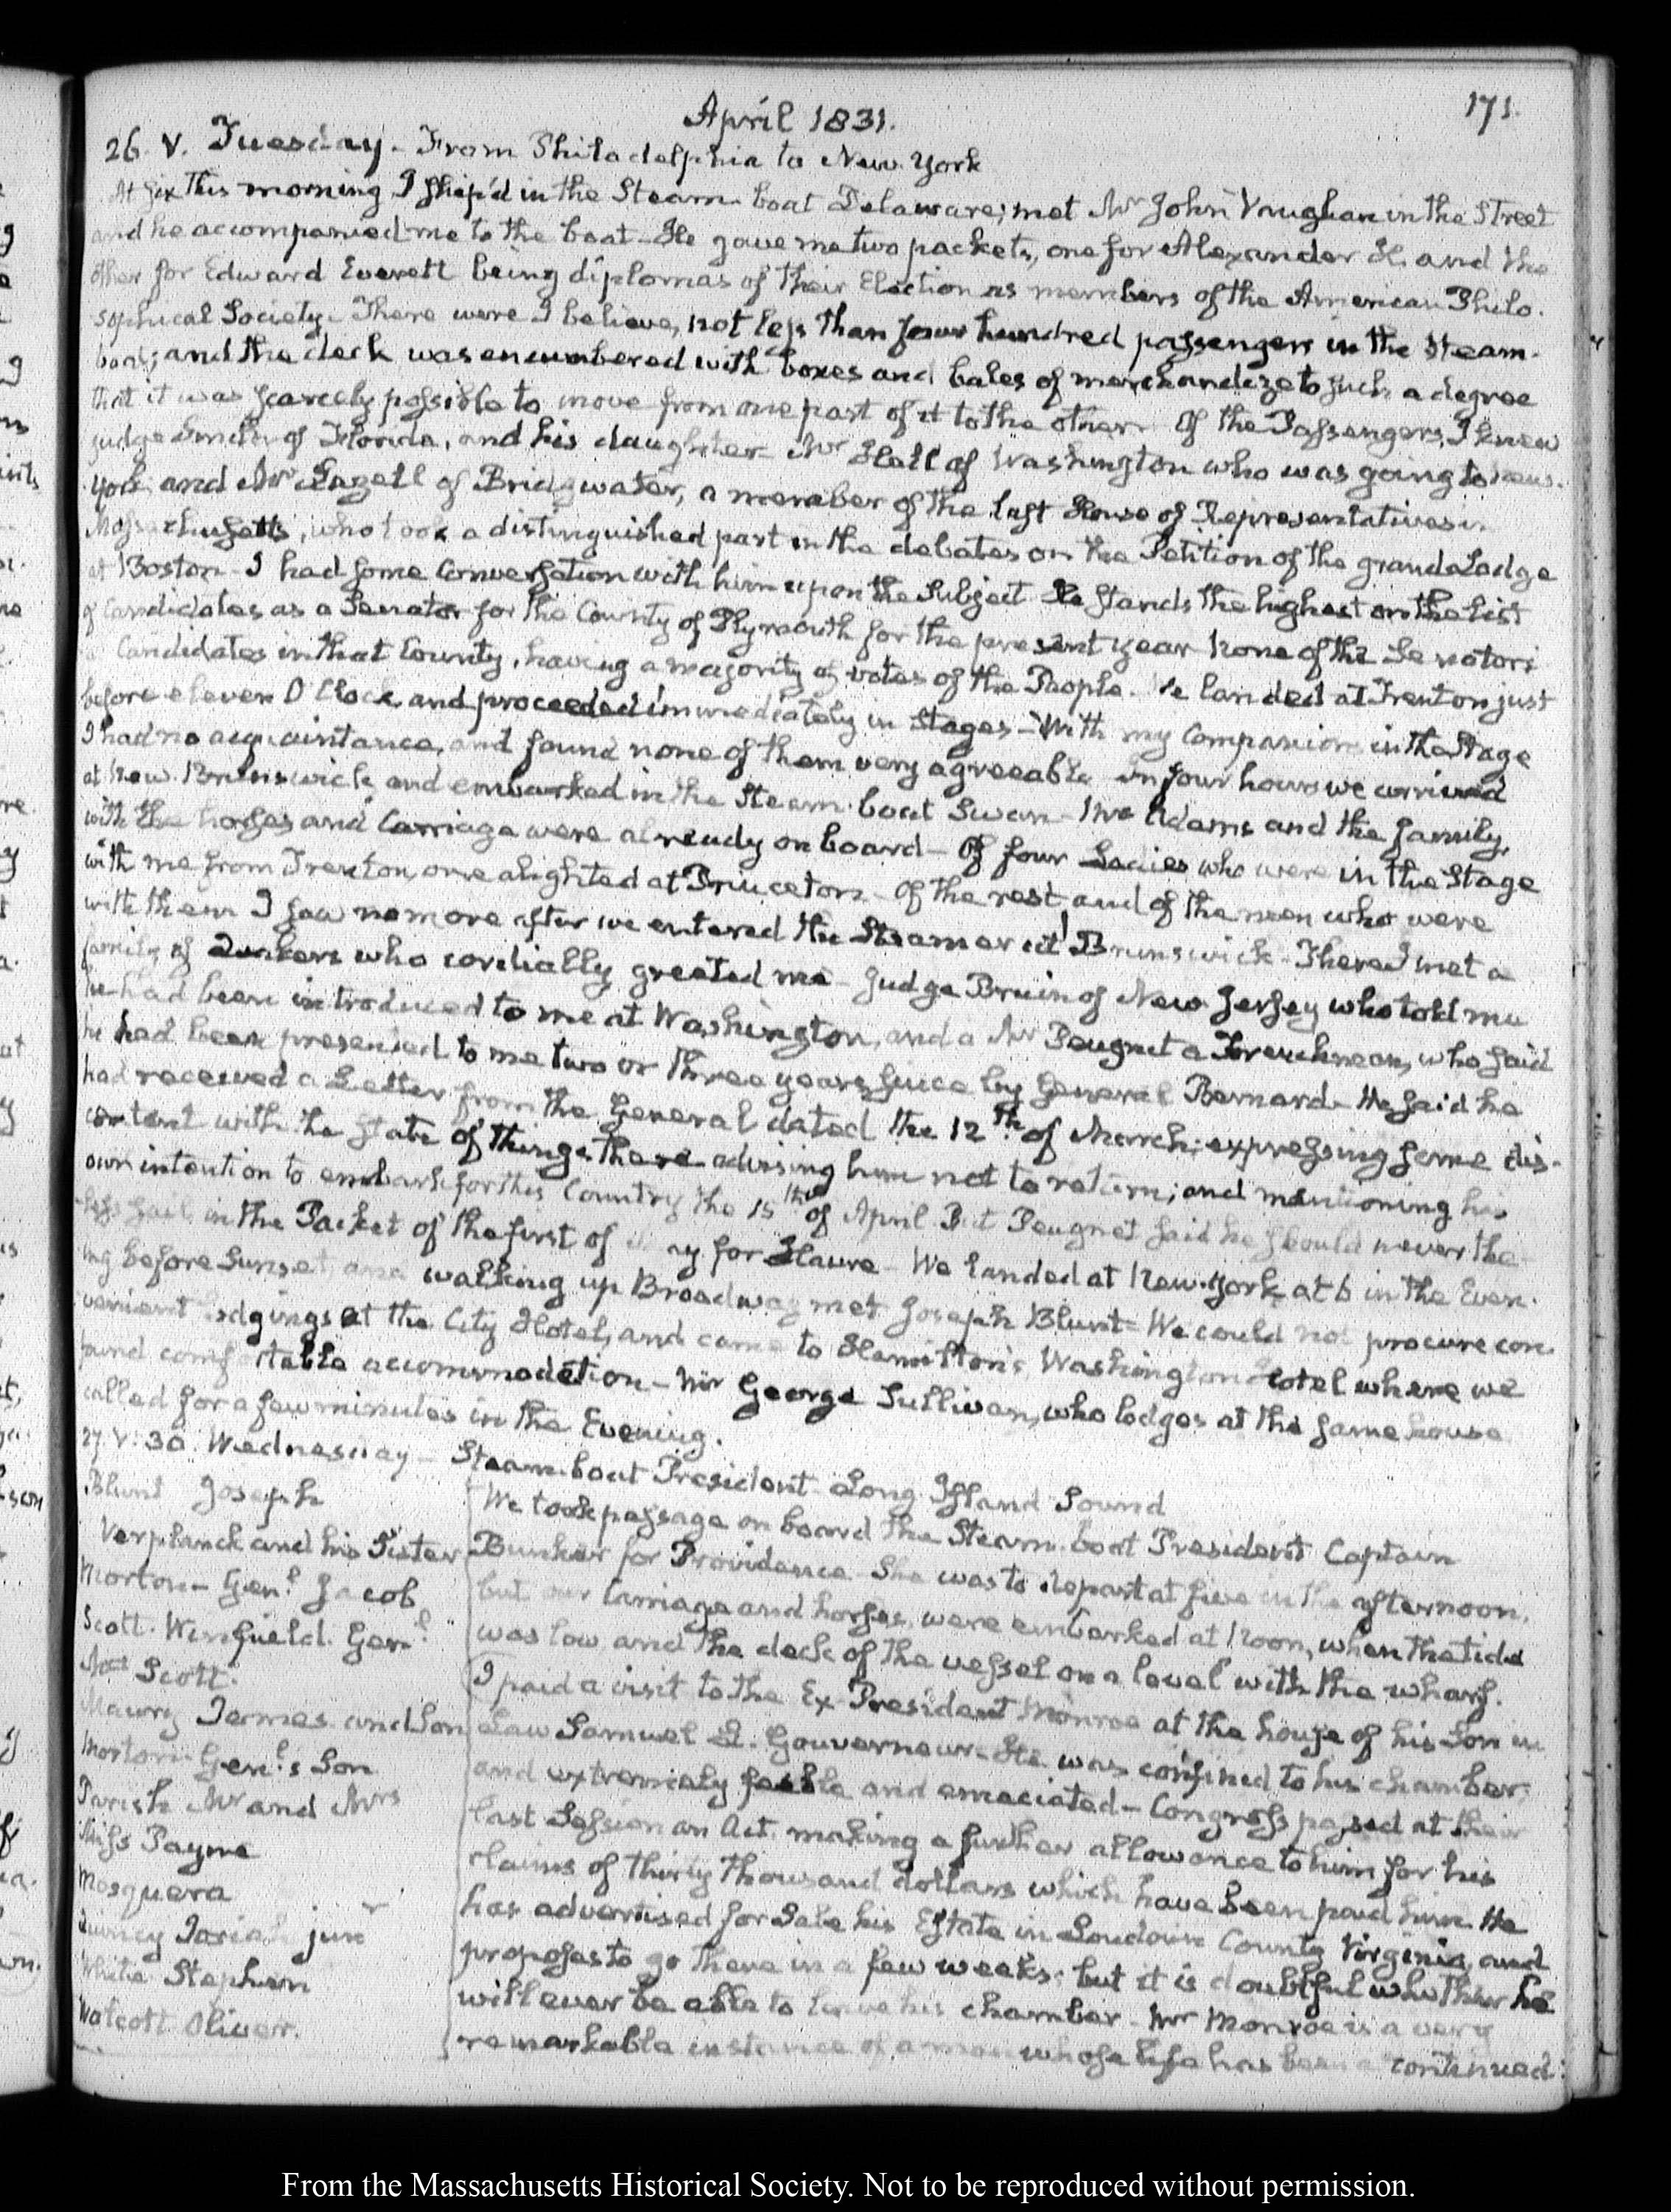 171.
April 1831.
26. V. Tuesday - From Philadelphia to New York
At six this morning I ship'd in the Steam-boat Delaware; met Mr John Vaughan in the Street
and he accompanied me to the boat - He gave me two packets, one for Alexander H. and the
other for Edward Everett being diplomas of their Election as members of the American Philo-
sophical Society - There were I believe, not less than four hundred passengers in the Steam-
boat; and the deck was encumbered with boxes and bales of merchandize to such a degree
that it was scarcely possible to move from one part of it to the other. Of the Passengers, I knew
judge Smith of Florida, and his daughter - Mr Hall of Washington who was going to New-
York and Mr Lazell of Bridgwater, a member of the last House of Representatives in
Massachusetts, who took a distinguished part in the debates on the Petition of the grand Lodge
at Boston - I had some Conversation with him upon the Subject. He stands the highest on the list
of Candidates as a Senator for the County of Plymouth for the present year none of the Senatori
Candidates in that County, having a majority of votes of the People. We landed at Trenton just
before eleven O'Clock and proceeded immediately in Stages - With my Companions in the Stage
I had no acquaintance, and found none of them very agreeable. In four hours we arrived
at New-Brunswick and embarked in the Steam-boat Swan - Mrs Adams and the family,
with the horses and Carriage were already on board - Of four Ladies who were in the Stage
with me from Trenton, one alighted at Princeton - Of the rest and of the men who were
with them I saw no more after we entered the Steamer at Brunswick - There I met a
family of Quakers who cordially greated me - Judge Bruin of New Jersey who told me
he had been introduced to me at Washington, and a Mr Peugnet a Frenchman, who said
he had been presented to me two or three years since by General Bernard - He said he
had received a Letter from the General dated the 12th of March; expressing some dis-
content with the state of things there - advising him not to return; and mentioning his
own intention to embark for this Country the 15th of April. But Peugnet said he should never the-
-less sail in the Packet of the first of May for Havre - We landed at New-York at 6 in the Even-
ing before Sunset, and walking up Broadway met Joseph Blunt - We could not procure con-
venient lodgings at the City Hotel, and came to Hamilton's Washington Hotel where we
found comfortable accommodation - Mr George Sullivan, who lodges at the same house
called for a few minutes in the Evening.
27. V: 30. Wednesday - Steam-boat President - Long-Island Sound
Blunt Joseph
Verplanck and his Sister
Morton - Genl. Jacob
Scott. Winfield. Genl.
Mrs Scott.
Maury James and Son
Morton - Genl's Son
Parish Mr and Mrs
Miss Payne
Mosquera
Quincy Josiah junr
White Stephen
Wolcott Oliver.
We took passage on board the Steam-boat President Captain
Bunker for Providence. She was to depart at five in the afternoon,
but our Carriage and horses, were embarked at Noon, when the tide
was low, and the deck of the vessel on a level with the wharf.
I paid a visit to the Ex-President Monroe at the house of his Son in
Law Samuel L. Gouverneur - He was confined to his chamber;
and extremely feeble and emaciated - Congress passed at their
last Session an Act making a further allowance to him for his
claims of thirty thousand dollars which have been paid him. He
has advertised for Sale his Estate in Loudoun County Virginia, and
proposes to go there in a few weeks; but it is doubtful whether he
will ever be able to leave his chamber - Mr Monroe is a very
remarkable instance of a man whose life has been a continued
From the Massachusetts Historical Society. Not to be reproduced without permission.